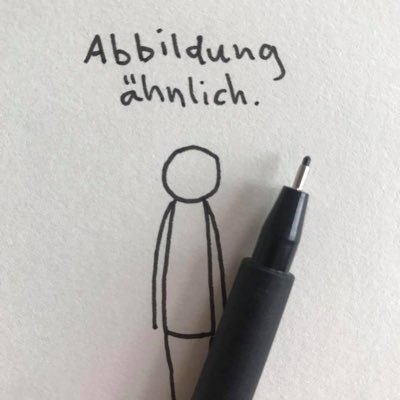 Abbildung
ähnlich.